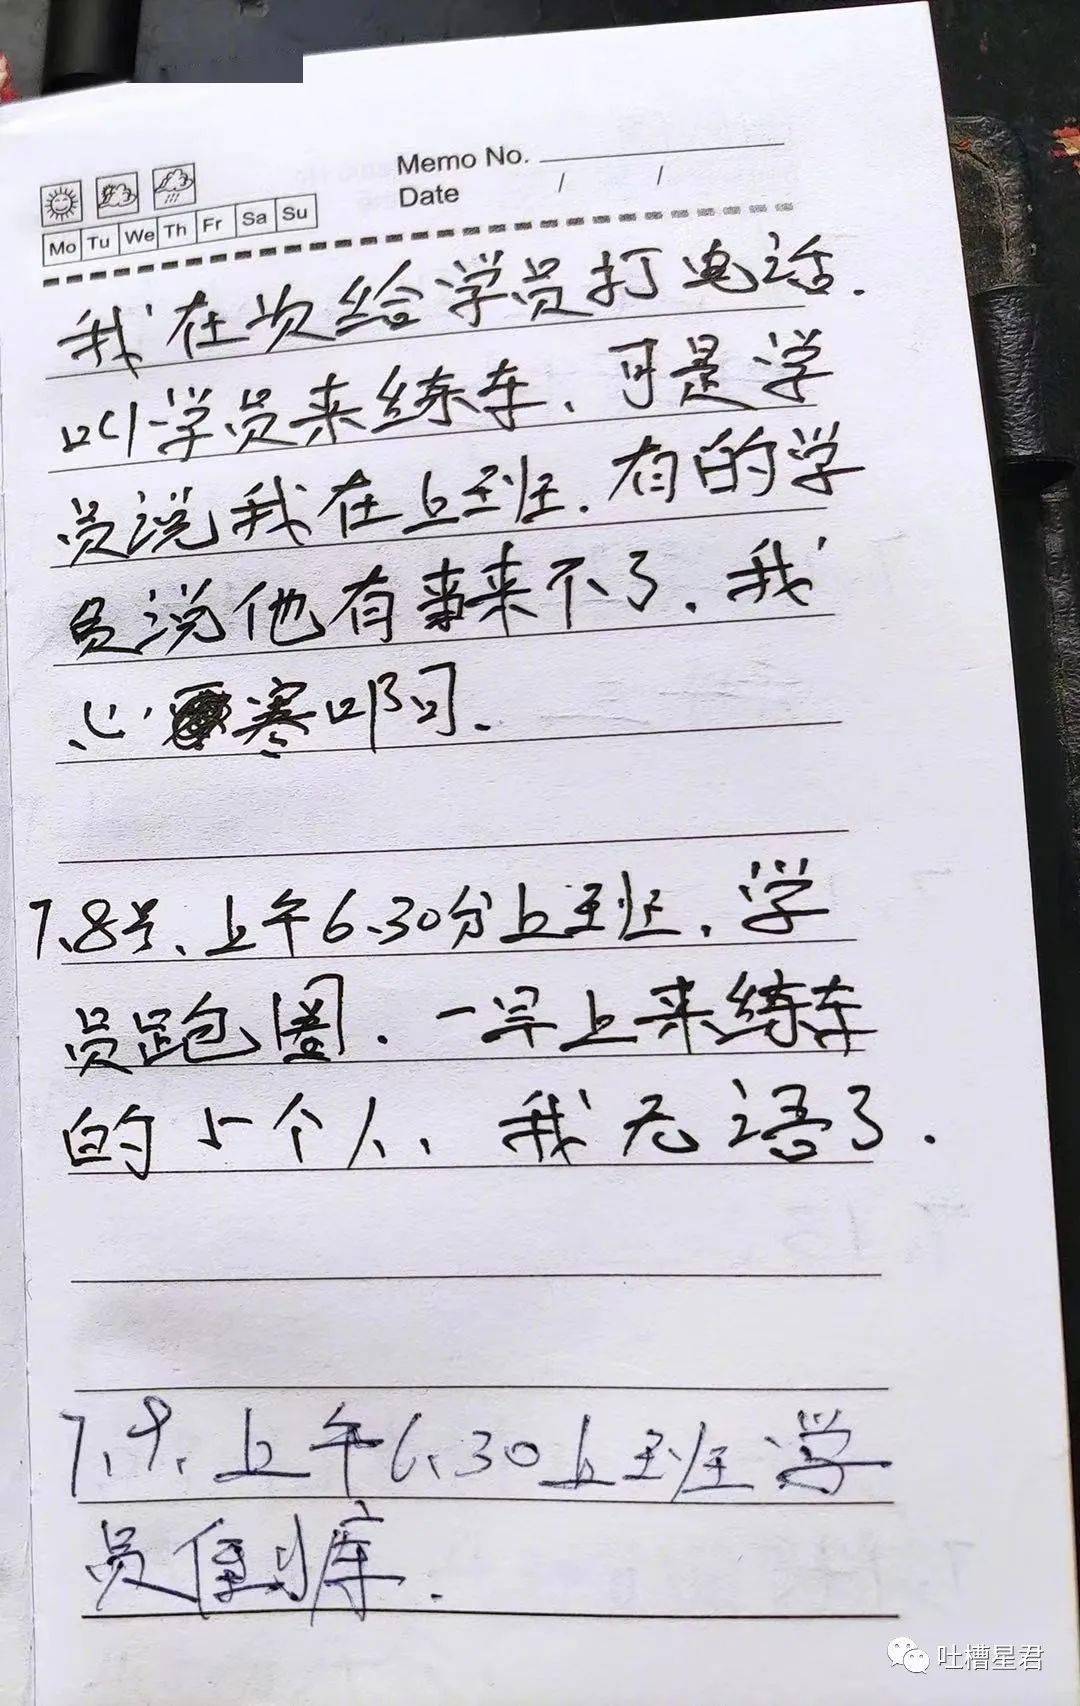 Memo No.
Date / /
Mo Tu We Th Fr Sa Su
我在次给学员打电话.
叫学员来练车、可是学
员说我在上班.有的学
员说他有事来不了.我
心寒啊.
7.8号、上午6.30分上班.学
员跑圈.一早上来练车
的5个人、我无语了.
7.9.上午6.30上班学
员倒库.
吐槽星君